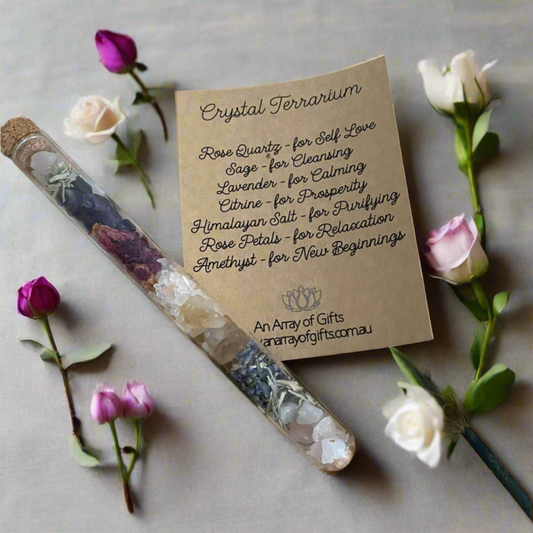 Crystal Terrarium
Rose Quartz - for Self Love
Sage - for Cleansing
Lavender - for Calming
Citrine - for Prosperity
Himalayan Salt - for Purifying
Rose Petals - for Relaxation
Amethyst - for New Beginnings
An Array of Gifts
anarrayofgifts.com.au